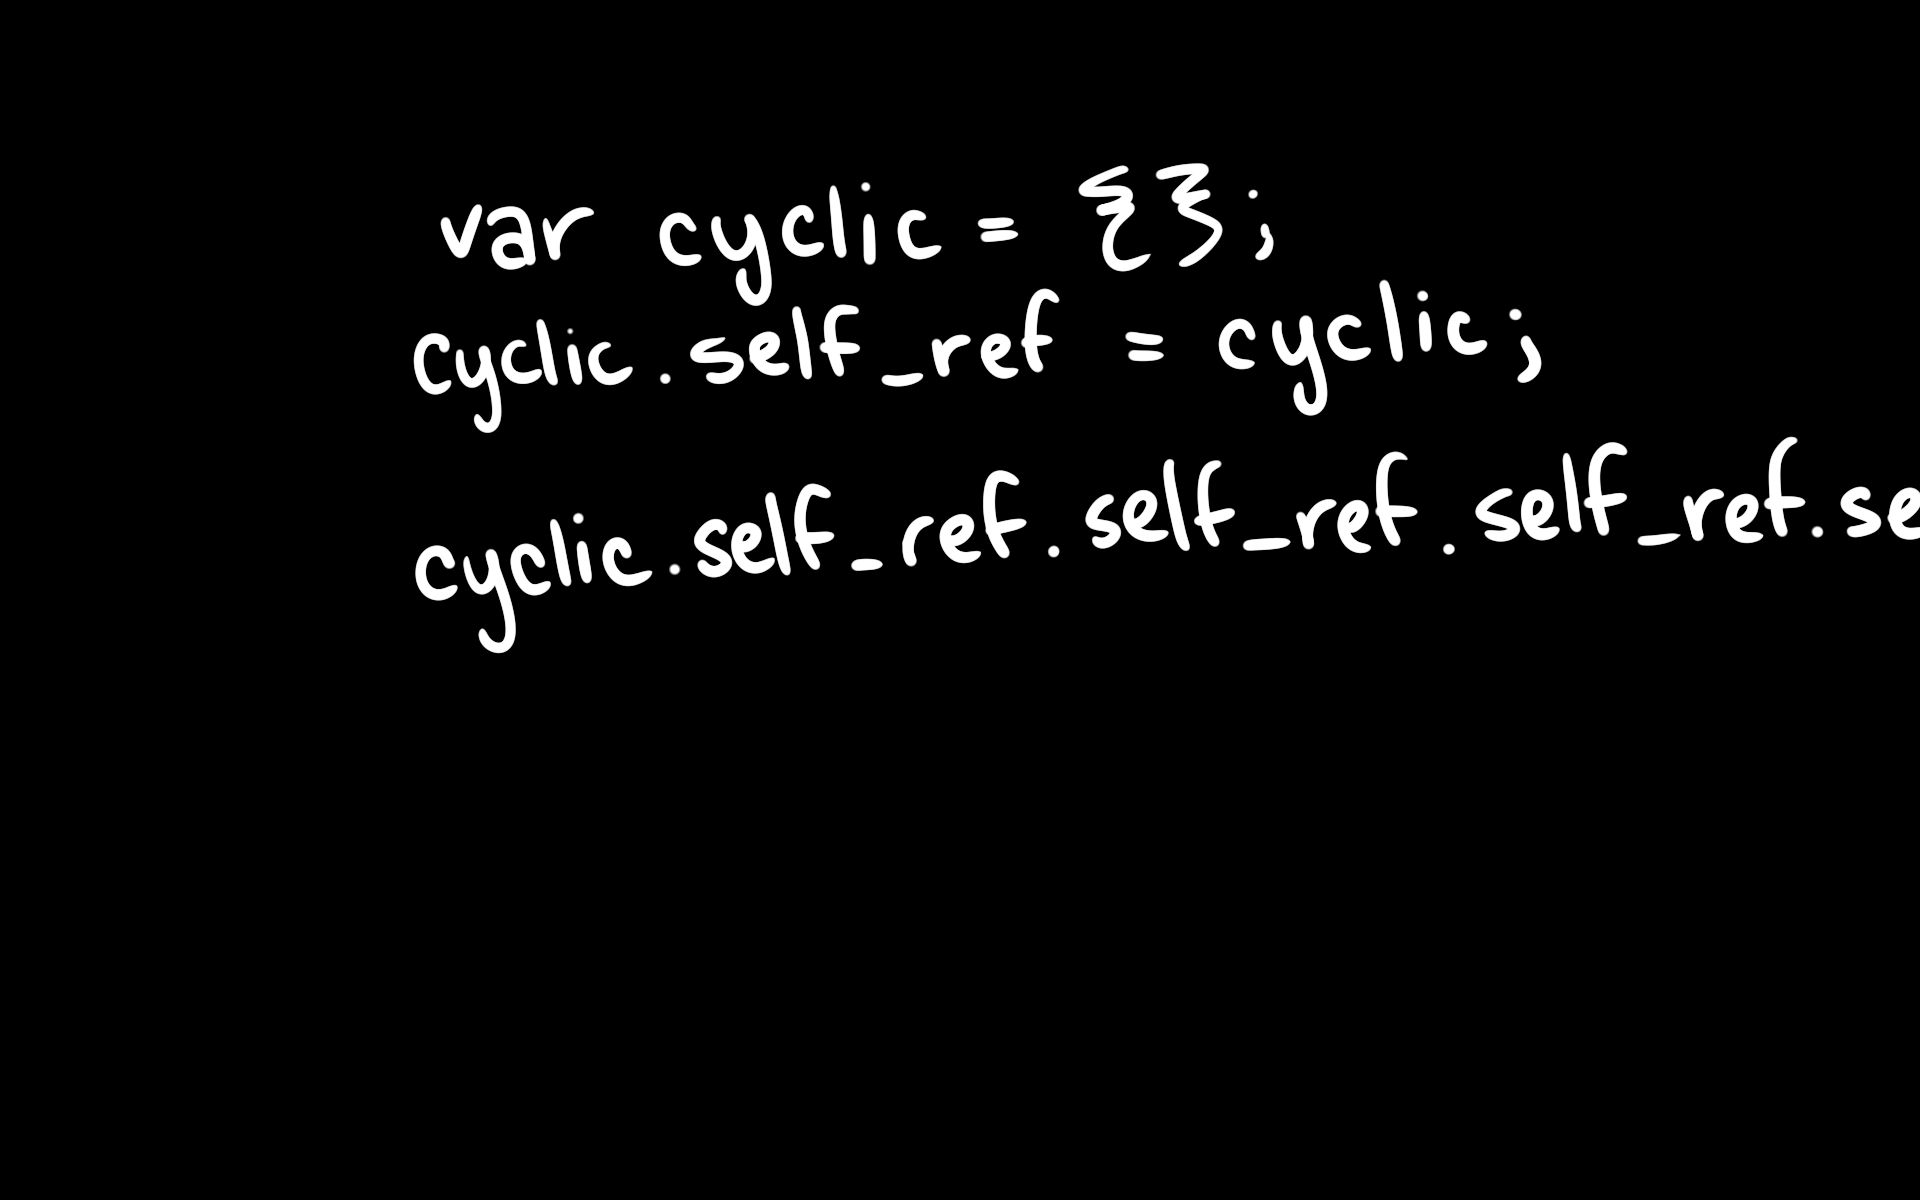 var cyclic = {};
cyclic.self_ref = cyclic;
cyclic.self_ref.self_ref.self_ref.se